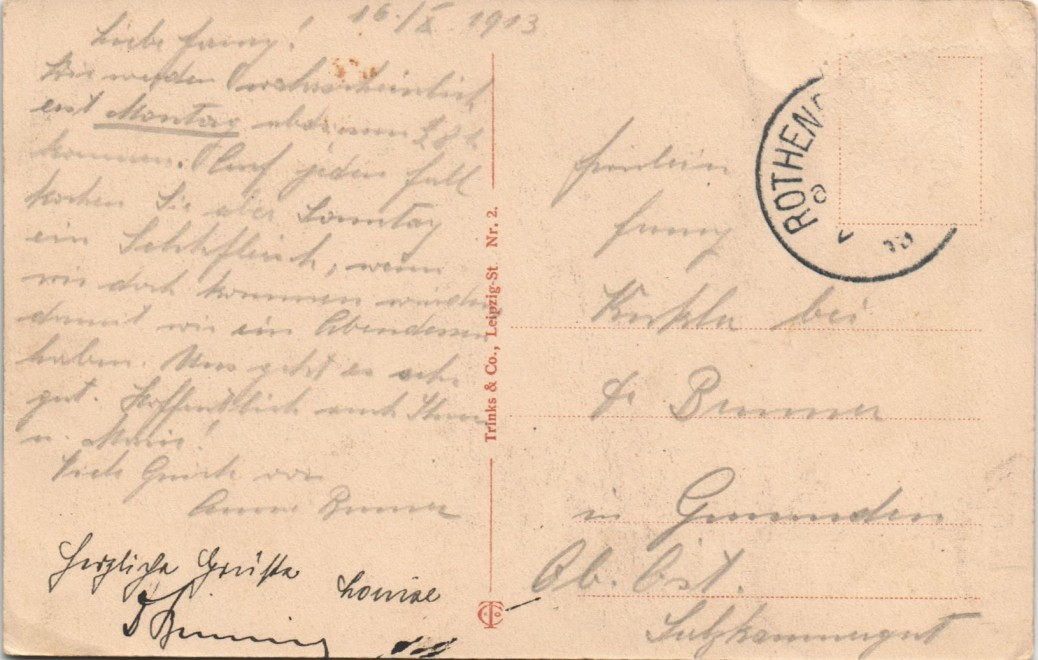 16./X. 1913
Liebe Fanny!
Wir werden wahrscheinlich
erst Montag abds um 8 h
kommen. Auf jeden Fall
kochen Sie aber Sonntag
ein Selchfleisch, wenn
wir doch kommen würden
damit wir ein Abendessen
haben. Uns geht es sehr
gut. Hoffentlich auch Ihnen
u. Marie!
Viele Grüße von
Anna Brunner
Herzliche Grüsse Louise
Trinks & Co., Leipzig-St Nr. 2.
ROTHEN
Fräulein
Fanny
bei
Dr Brunner
in Gmunden
Ob. Öst.
Salzkammergut